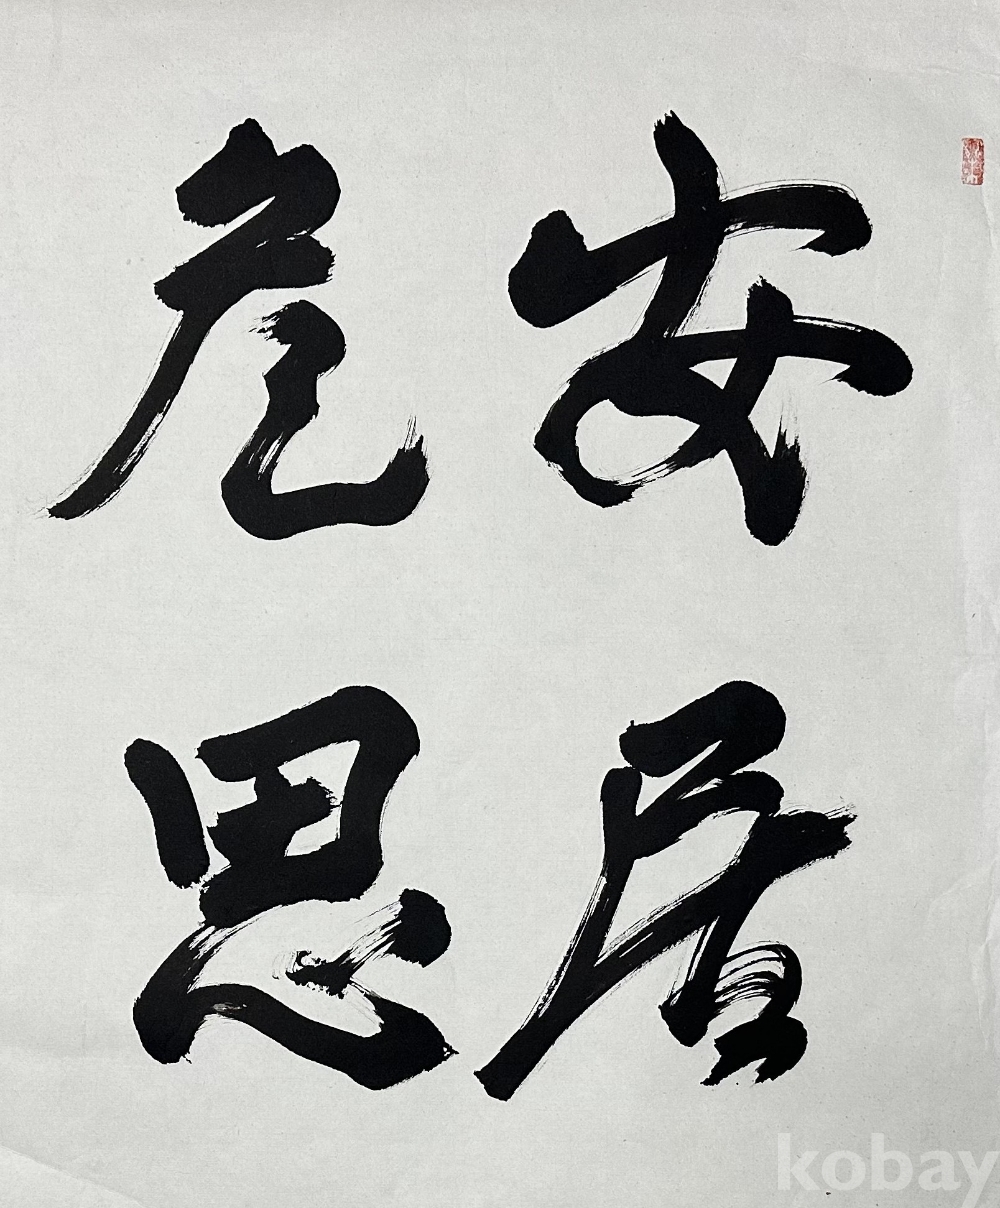 安居
危思
kobay